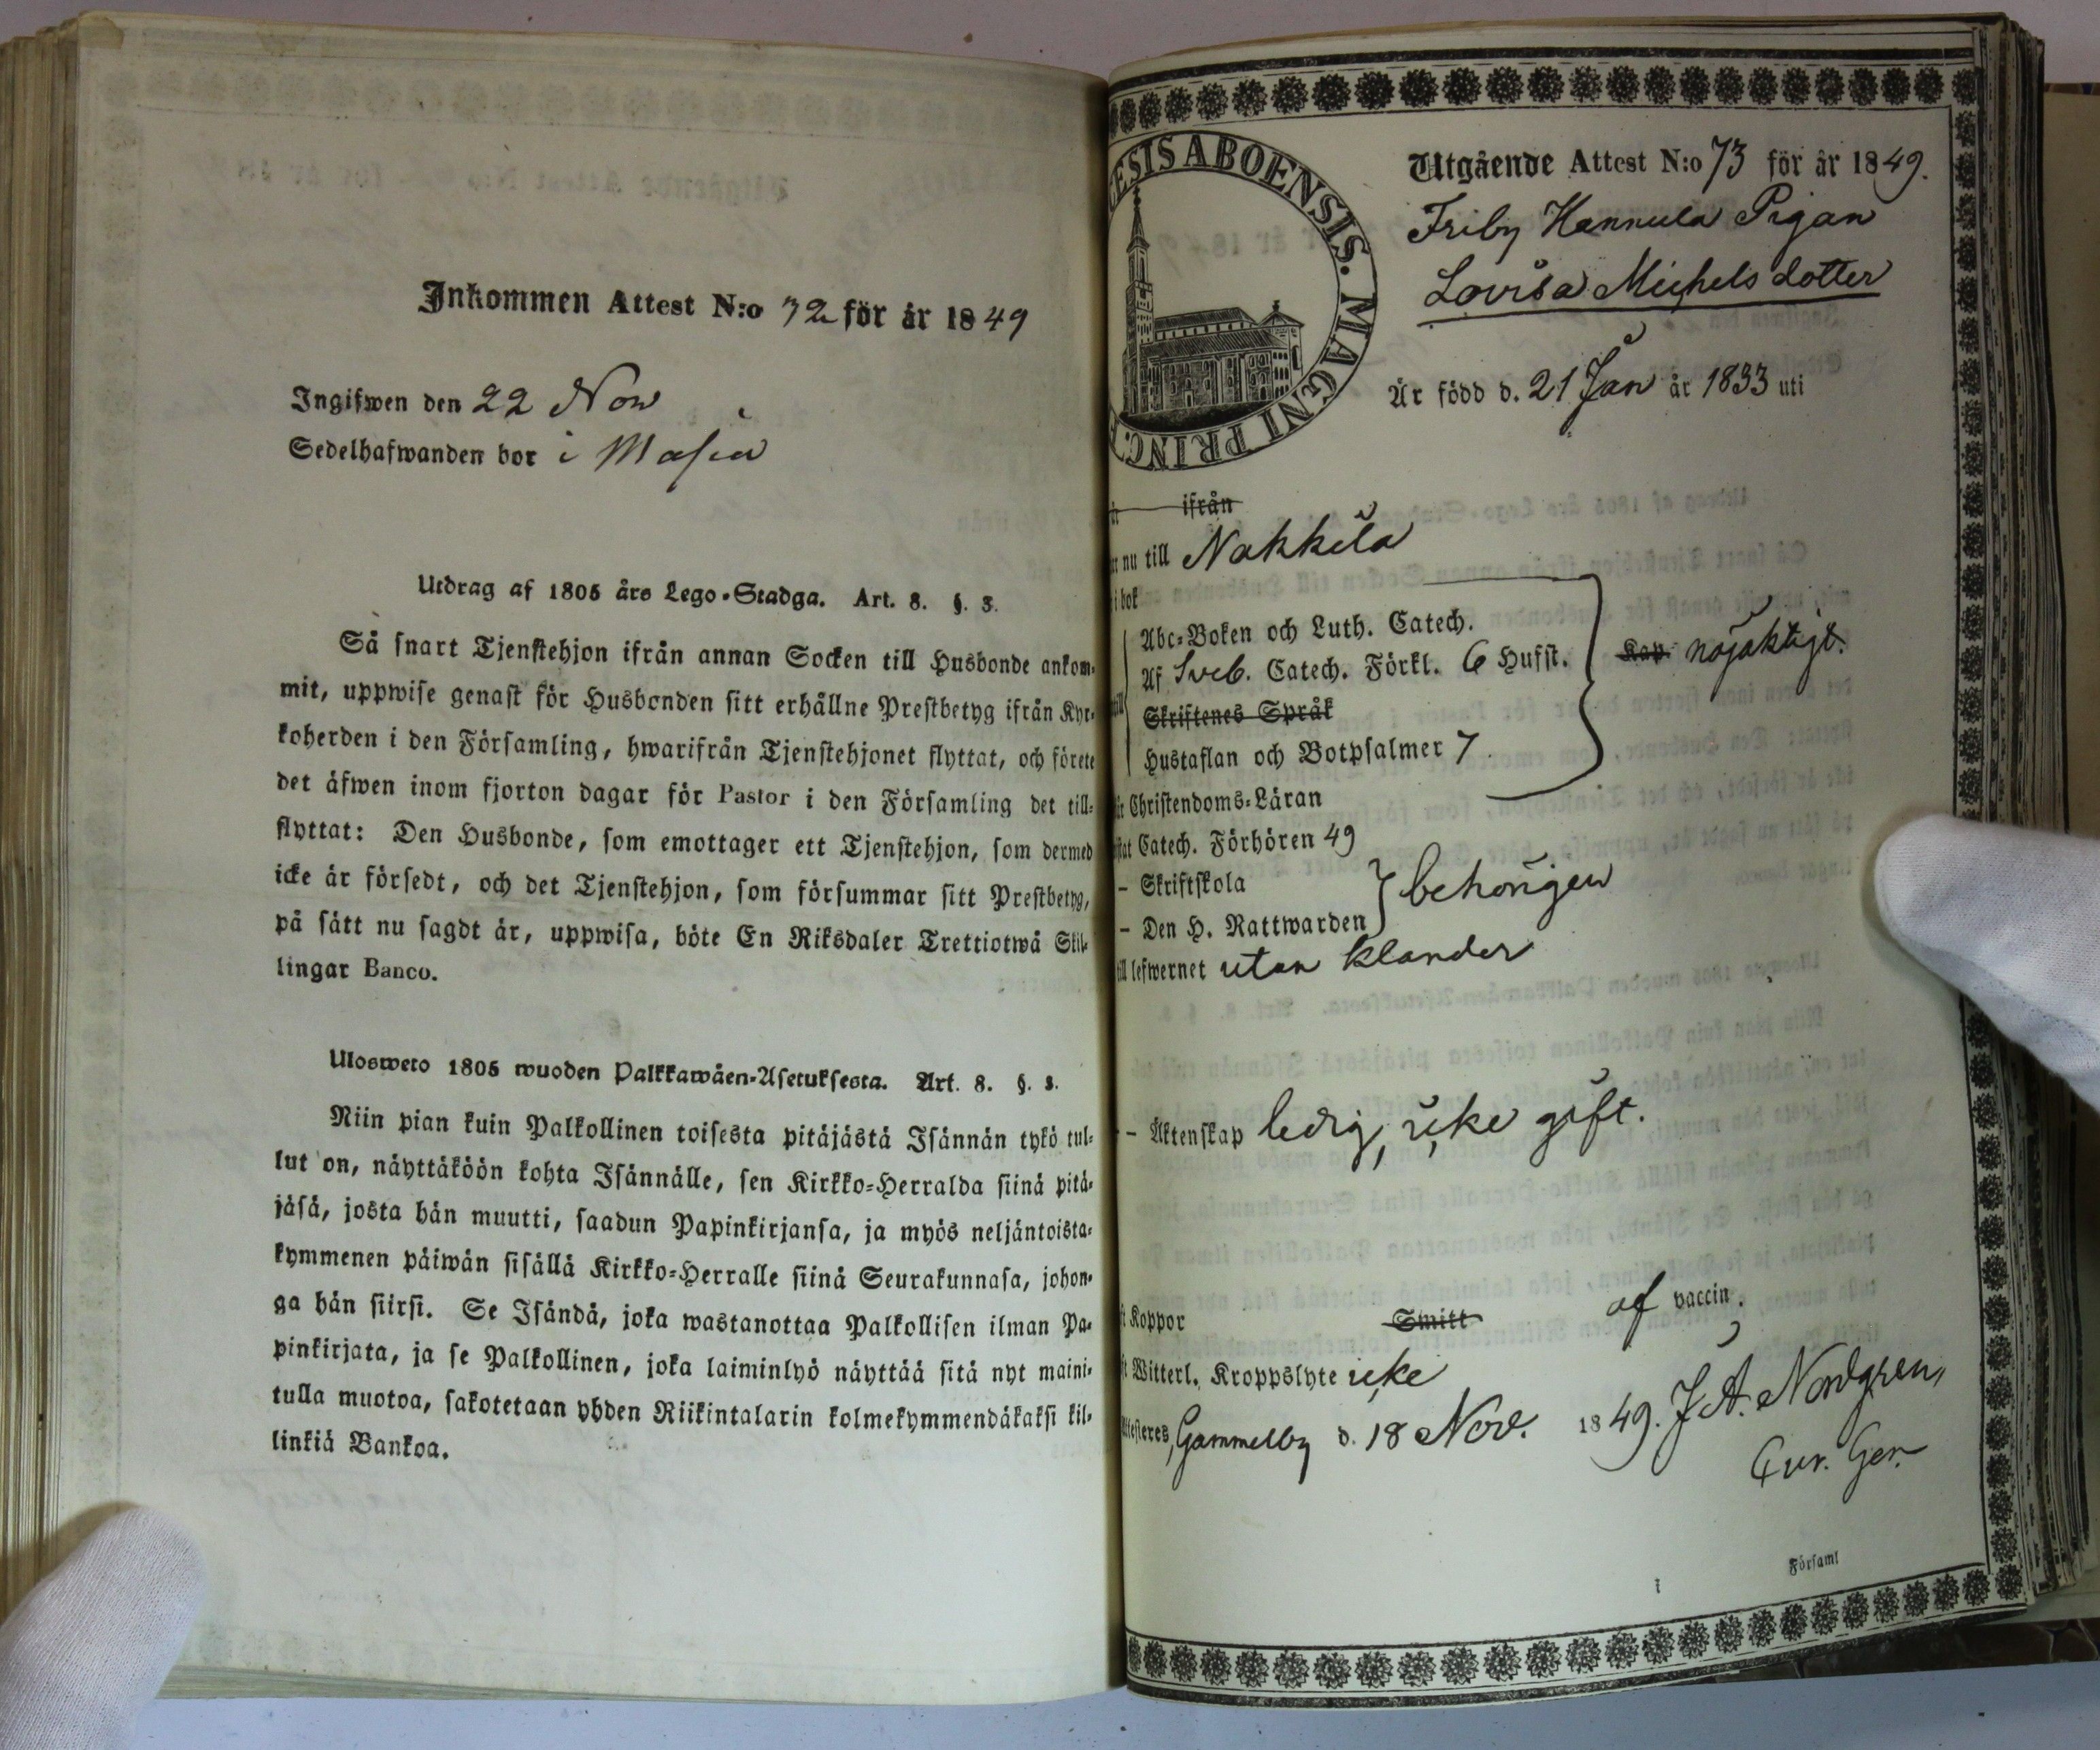 Inkommen Attest N:o 72 för år 1849
Ingifwen den 22 Nov
Sedelhafwanden bor i Masia
Utdrag af 1805 års Lego-Stadga. Art. 8. §. 3.
Så snart Tjenstehjon ifrån annan Socken till Husbonde ankom-
mit, uppwise genast för Husbonden sitt erhållne Prestbetyg ifrån Kyr-
koherden i den Församling, hwarifrån Tjenstehjonet flyttat, och förete
det äfwen inom fjorton dagar för Pastor i den Församling det till-
flyttat: Den Husbonde, som emottager ett Tjenstehjon, som dermed
icke är försedt, och det Tjenstehjon, som försummar sitt Prestbetyg,
på sätt nu sagdt är, uppwisa, böte En Riksdaler Trettiotwå Skil-
lingar Banco.
Ulosweto 1805 wuoden Palkkawäen-Asetuksesta. Art. 8. §. 3.
Niin pian kuin Palkollinen toisesta pitäjästä Isännän tykö tul-
lut on, näyttäköön kohta Isännälle, sen Kirkko-Herralda siinä pitä-
jäsä, josta hän muutti, saadun Papinkirjansa, ja myös neljäntoista-
kymmenen päiwän sisällä Kirkko-Herralle siinä Seurakunnasa, johon-
ga hän siirsi. Se Isändä, joka wastanottaa Palkollisen ilman Pa-
pinkirjata, ja se Palkollinen, joka laiminlyö näyttää sitä nyt maini-
tulla muotoa, sakotetaan yhden Riikintalarin kolmekymmendäkaksi kil-
linkiä Bankoa.
ESIS ABOENSIS. MAGNI PRINC
Utgående Attest N:o 73 för år 1849.
Friby Hannula Pigan
Lovisa Michels dotter
Är född d. 21 Jan år 1833 uti
ifrån
nu till Nakkila
i bok
Abc-Boken och Luth. Catech.
Af Sveb. Catech. Förkl. 6 Hufst. Kap. nöjaktigt.
Skriftenes Språk
Hustaflan och Botpsalmer 7
Christendoms-Läran
Catech. Förhören 49
- Skriftskola
- Den H. Nattwarden behörigen
lefwernet utan klander
- Äktenskap ledig, icke gift.
Koppor Smitt af vaccin.
Witterl. Kroppslyte icke
Gammelby d. 18 Nov. 1849. J A. Nordgren,
Cur. Ger.
i Församl